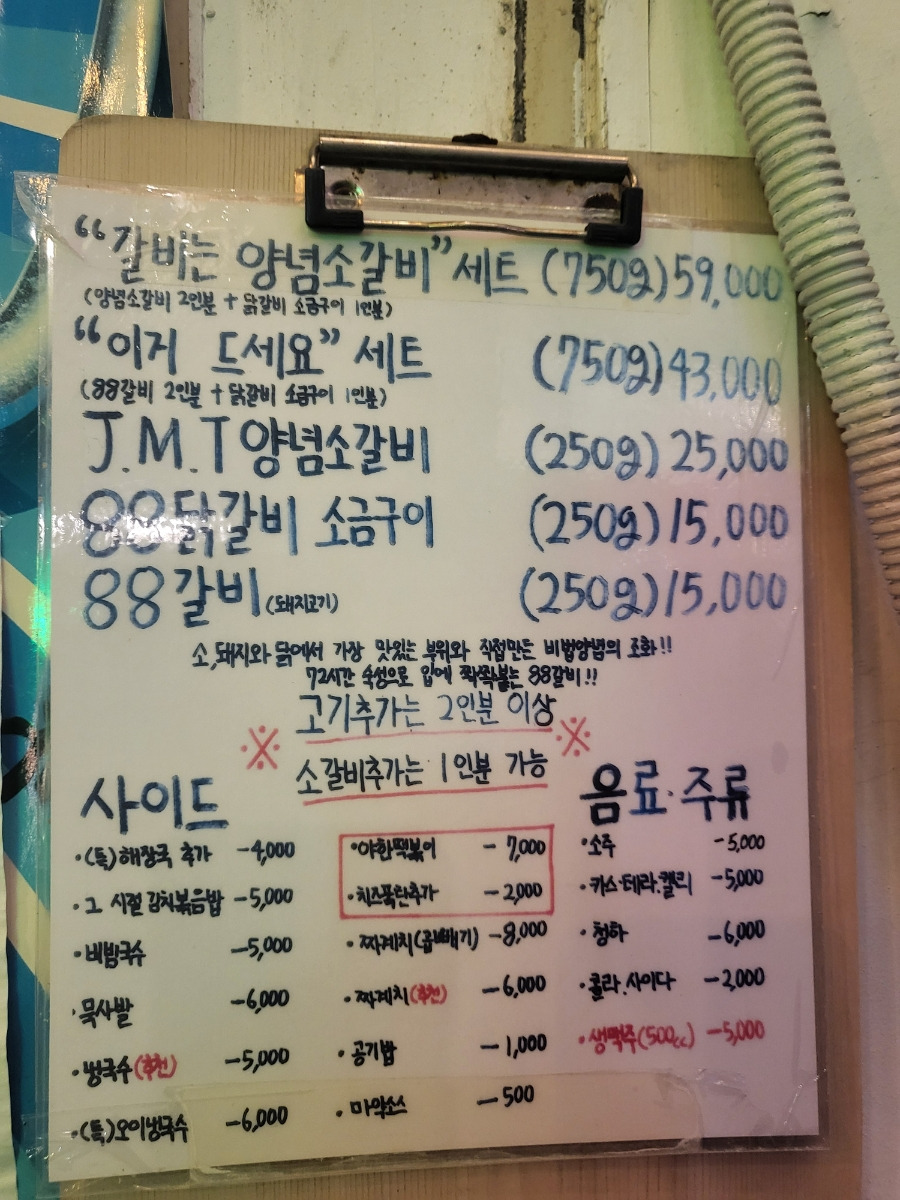 “갈비는 양념소갈비” 세트 (750g) 59,000
(양념소갈비 2인분 + 닭갈비 소금구이 1인분)
“이거 드세요” 세트 (750g) 43,000
(88갈비 2인분 + 닭갈비 소금구이 1인분)
J.M.T 양념소갈비 (250g) 25,000
88닭갈비 소금구이 (250g) 15,000
88갈비 (돼지고기) (250g) 15,000
소,돼지와 닭에서 가장 맛있는 부위와 직접만든 비법양념의 조화!!
72시간 숙성으로 입에 쫙쫙붙는 88갈비!!
고기추가는 2인분 이상
※ ※
소갈비추가는 1인분 가능
사이드
·(특)해장국 추가 -4,000
·그 시절 김치볶음밥 -5,000
·비빔국수 -5,000
·묵사발 -6,000
·냉국수(추천) -5,000
·(특)오이냉국수 -6,000
·야한떡볶이 -7,000
·치즈폭탄추가 -2,000
·짜계치(곱빼기) -8,000
·짜계치(추천) -6,000
·공기밥 -1,000
·마약소스 -500
음료·주류
·소주 -5,000
·카스·테라.켈리 -5,000
·청하 -6,000
·콜라.사이다 -2,000
·생맥주(500cc) -5,000